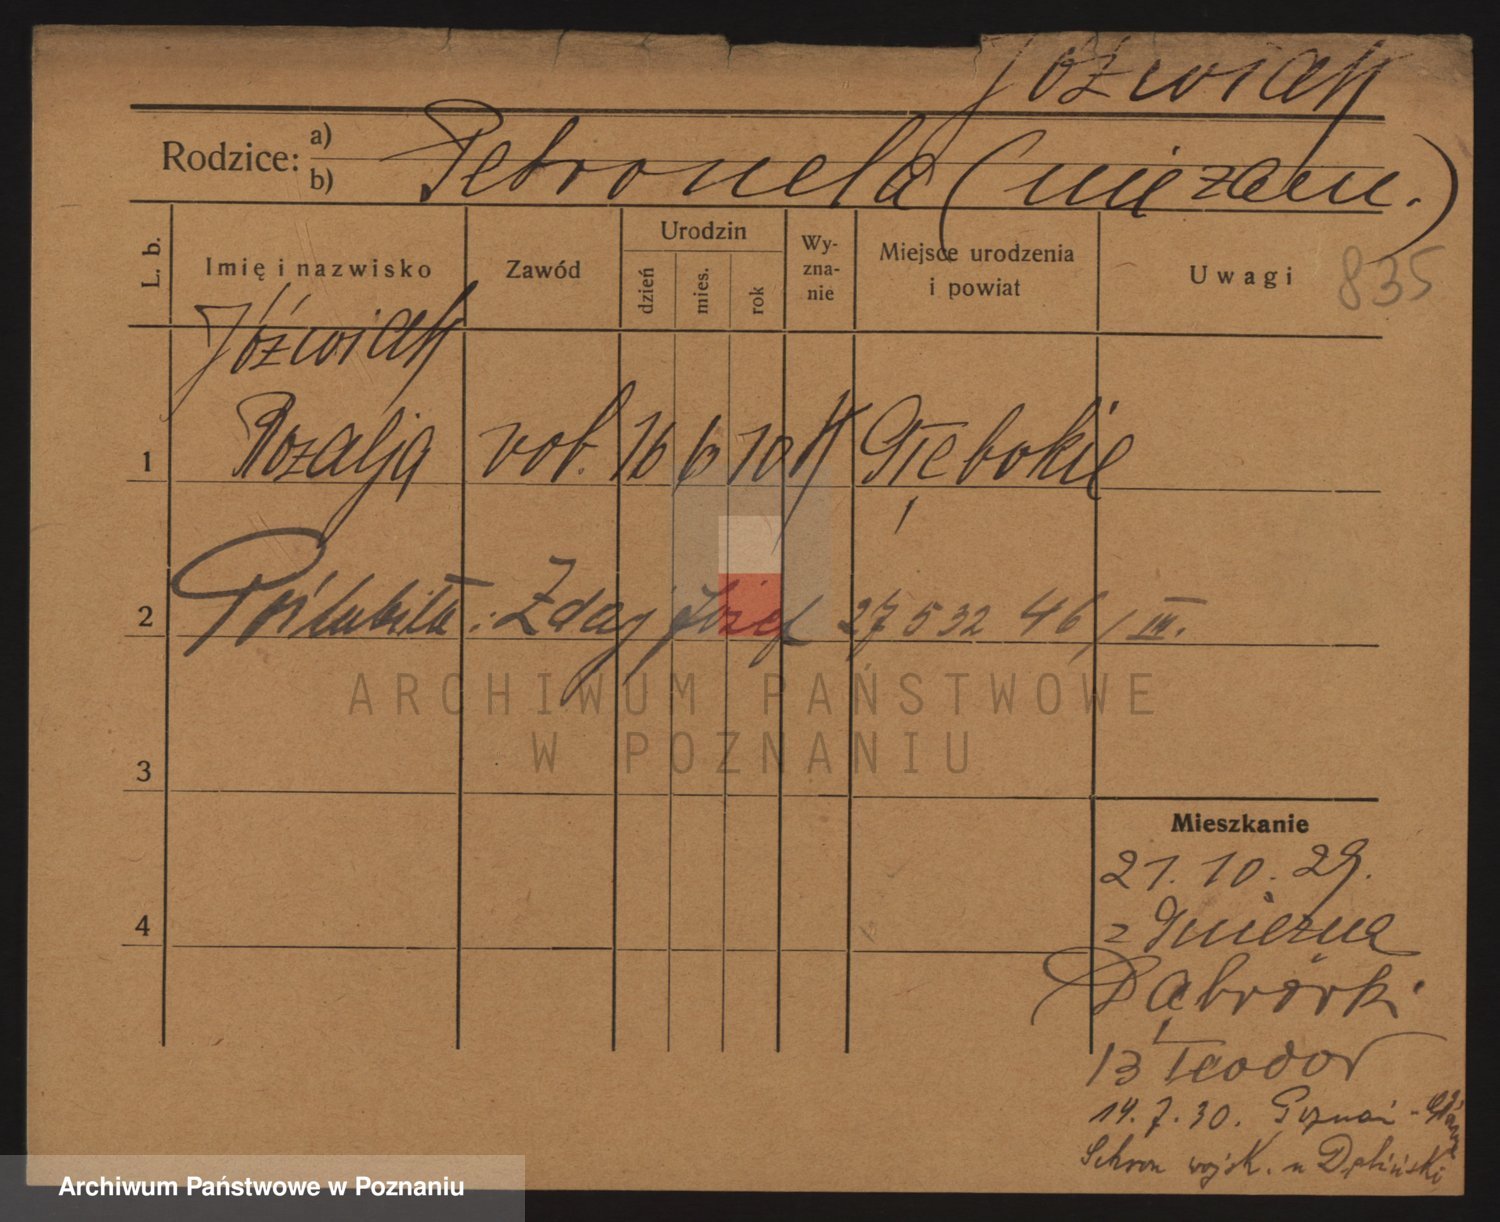 Jóźwiak
Rodzice: a)
b)
Petronela (niezam.)
L. b.
Imię i nazwisko
Zawód
Urodzin
dzień
mies.
rok
Wy-
zna-
nie
Miejsce urodzenia
i powiat
Uwagi
835
Jóźwiak
1 Rozalja rob. 16 6 10 K Głębokie
2 Poślubiła: Zdaj Józef 27532 46/III.
ARCHIWUM PAŃSTWOWE
W POZNANIU
3
Mieszkanie
21. 10. 29.
z Gniezna
4
Dąbrówki
13 Teodor
14. 7. 30. Poznań -
Schron wojsk. u Dębiński
Archiwum Państwowe w Poznaniu